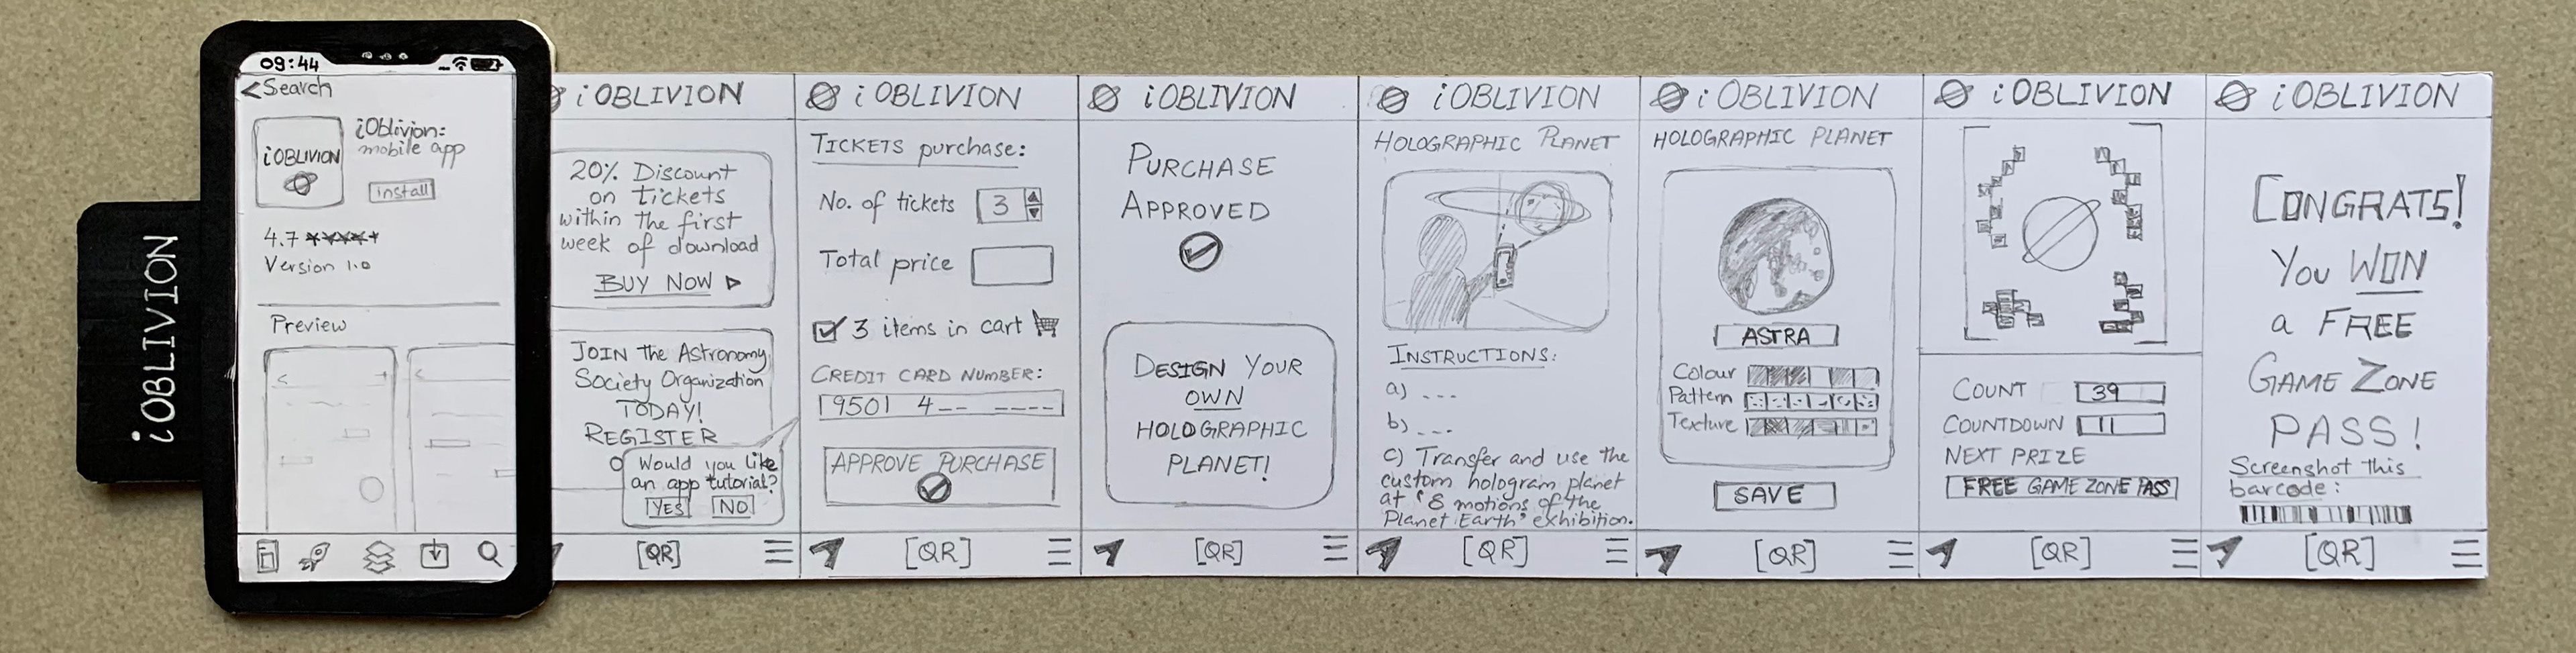 iOBLIVION
09:44
<Search
iOBLIVION
iOblivion:
mobile app
install
4.7
Version 1.0
Preview
iOBLIVION
20% Discount
on tickets
within the first
week of download
BUY NOW
JOIN the Astronomy
Society Organization
TODAY!
REGISTER
Would you like
an app tutorial?
YES NO
[QR]
iOBLIVION
TICKETS purchase:
No. of tickets 3
Total price
3 items in cart
CREDIT CARD NUMBER:
9501 4-- ----
APPROVE PURCHASE
[QR]
iOBLIVION
PURCHASE
APPROVED
DESIGN YOUR
OWN
HOLOGRAPHIC
PLANET!
[QR]
iOBLIVION
HOLOGRAPHIC PLANET
INSTRUCTIONS:
a) ---
b) ---
c) Transfer and use the
custom hologram planet
at '8 motions of the
Planet Earth' exhibition.
[QR]
iOBLIVION
HOLOGRAPHIC PLANET
ASTRA
Colour
Pattern
Texture
SAVE
[QR]
iOBLIVION
COUNT 39
COUNTDOWN
NEXT PRIZE
FREE GAME ZONE PASS
[QR]
iOBLIVION
CONGRATS!
You WIN
a FREE
GAME ZONE
PASS!
Screenshot this
barcode:
[QR]